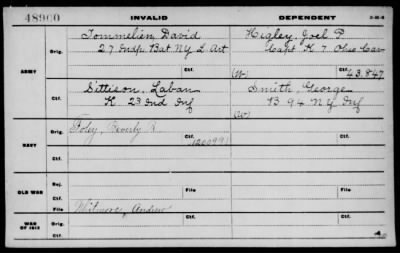 48900
INVALID
DEPENDENT
ARMY
Orig.
Tommelien, David
27 Indp. Bat NY L Art
Higley, Joel P.
Capt K 7 Ohio Cav
(W)
Ctf.
43.847
Ctf.
Dittison, Laban
K 23 Ind Inf
Smith, George
B 94 NY Inf
(W)
NAVY
Orig.
Foley, Beverly R.
Ctf.
1200991
Orig.
Ctf.
Ctf.
OLD WAR
Rej.
Ctf.
File
Ctf.
File
File
Whitmore, Andrew
WAR OF 1812
Orig.
Ctf.
Ctf.
Ctf.